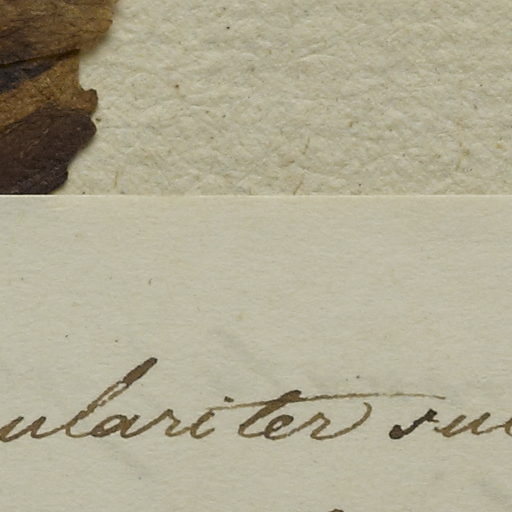 ulariter su